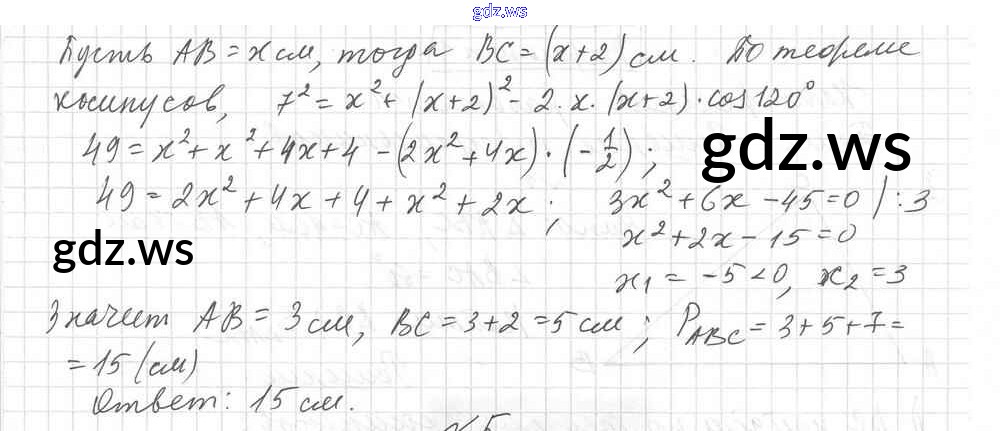 gdz.ws
Пусть AB = x см, тогда BC = (x+2) см. По теореме
косинусов, 7² = x² + (x+2)² - 2·x·(x+2)·cos120°
49 = x² + x² + 4x + 4 - (2x² + 4x)·(-1/2);
gdz.ws
49 = 2x² + 4x + 4 + x² + 2x; 3x² + 6x - 45 = 0 | :3
x² + 2x - 15 = 0
gdz.ws
x₁ = -5 < 0, x₂ = 3
Значит AB = 3 см, BC = 3+2 = 5 см; P_ABC = 3+5+7 =
= 15 (см)
Ответ: 15 см.